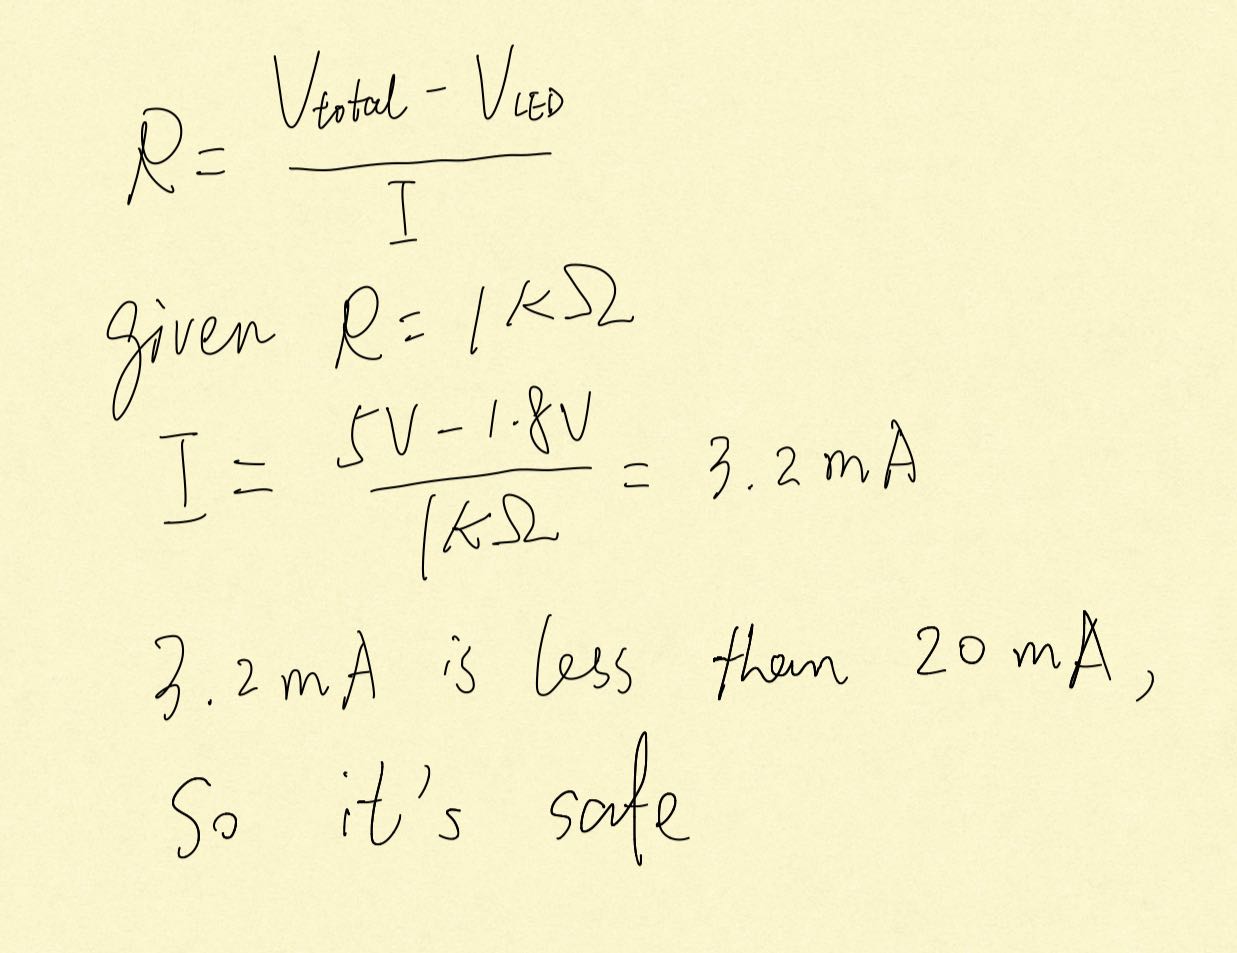 R = (V_total - V_LED) / I
given R = 1 KΩ
I = (5V - 1.8V) / 1KΩ = 3.2 mA
3.2 mA is less than 20 mA,
So it's safe